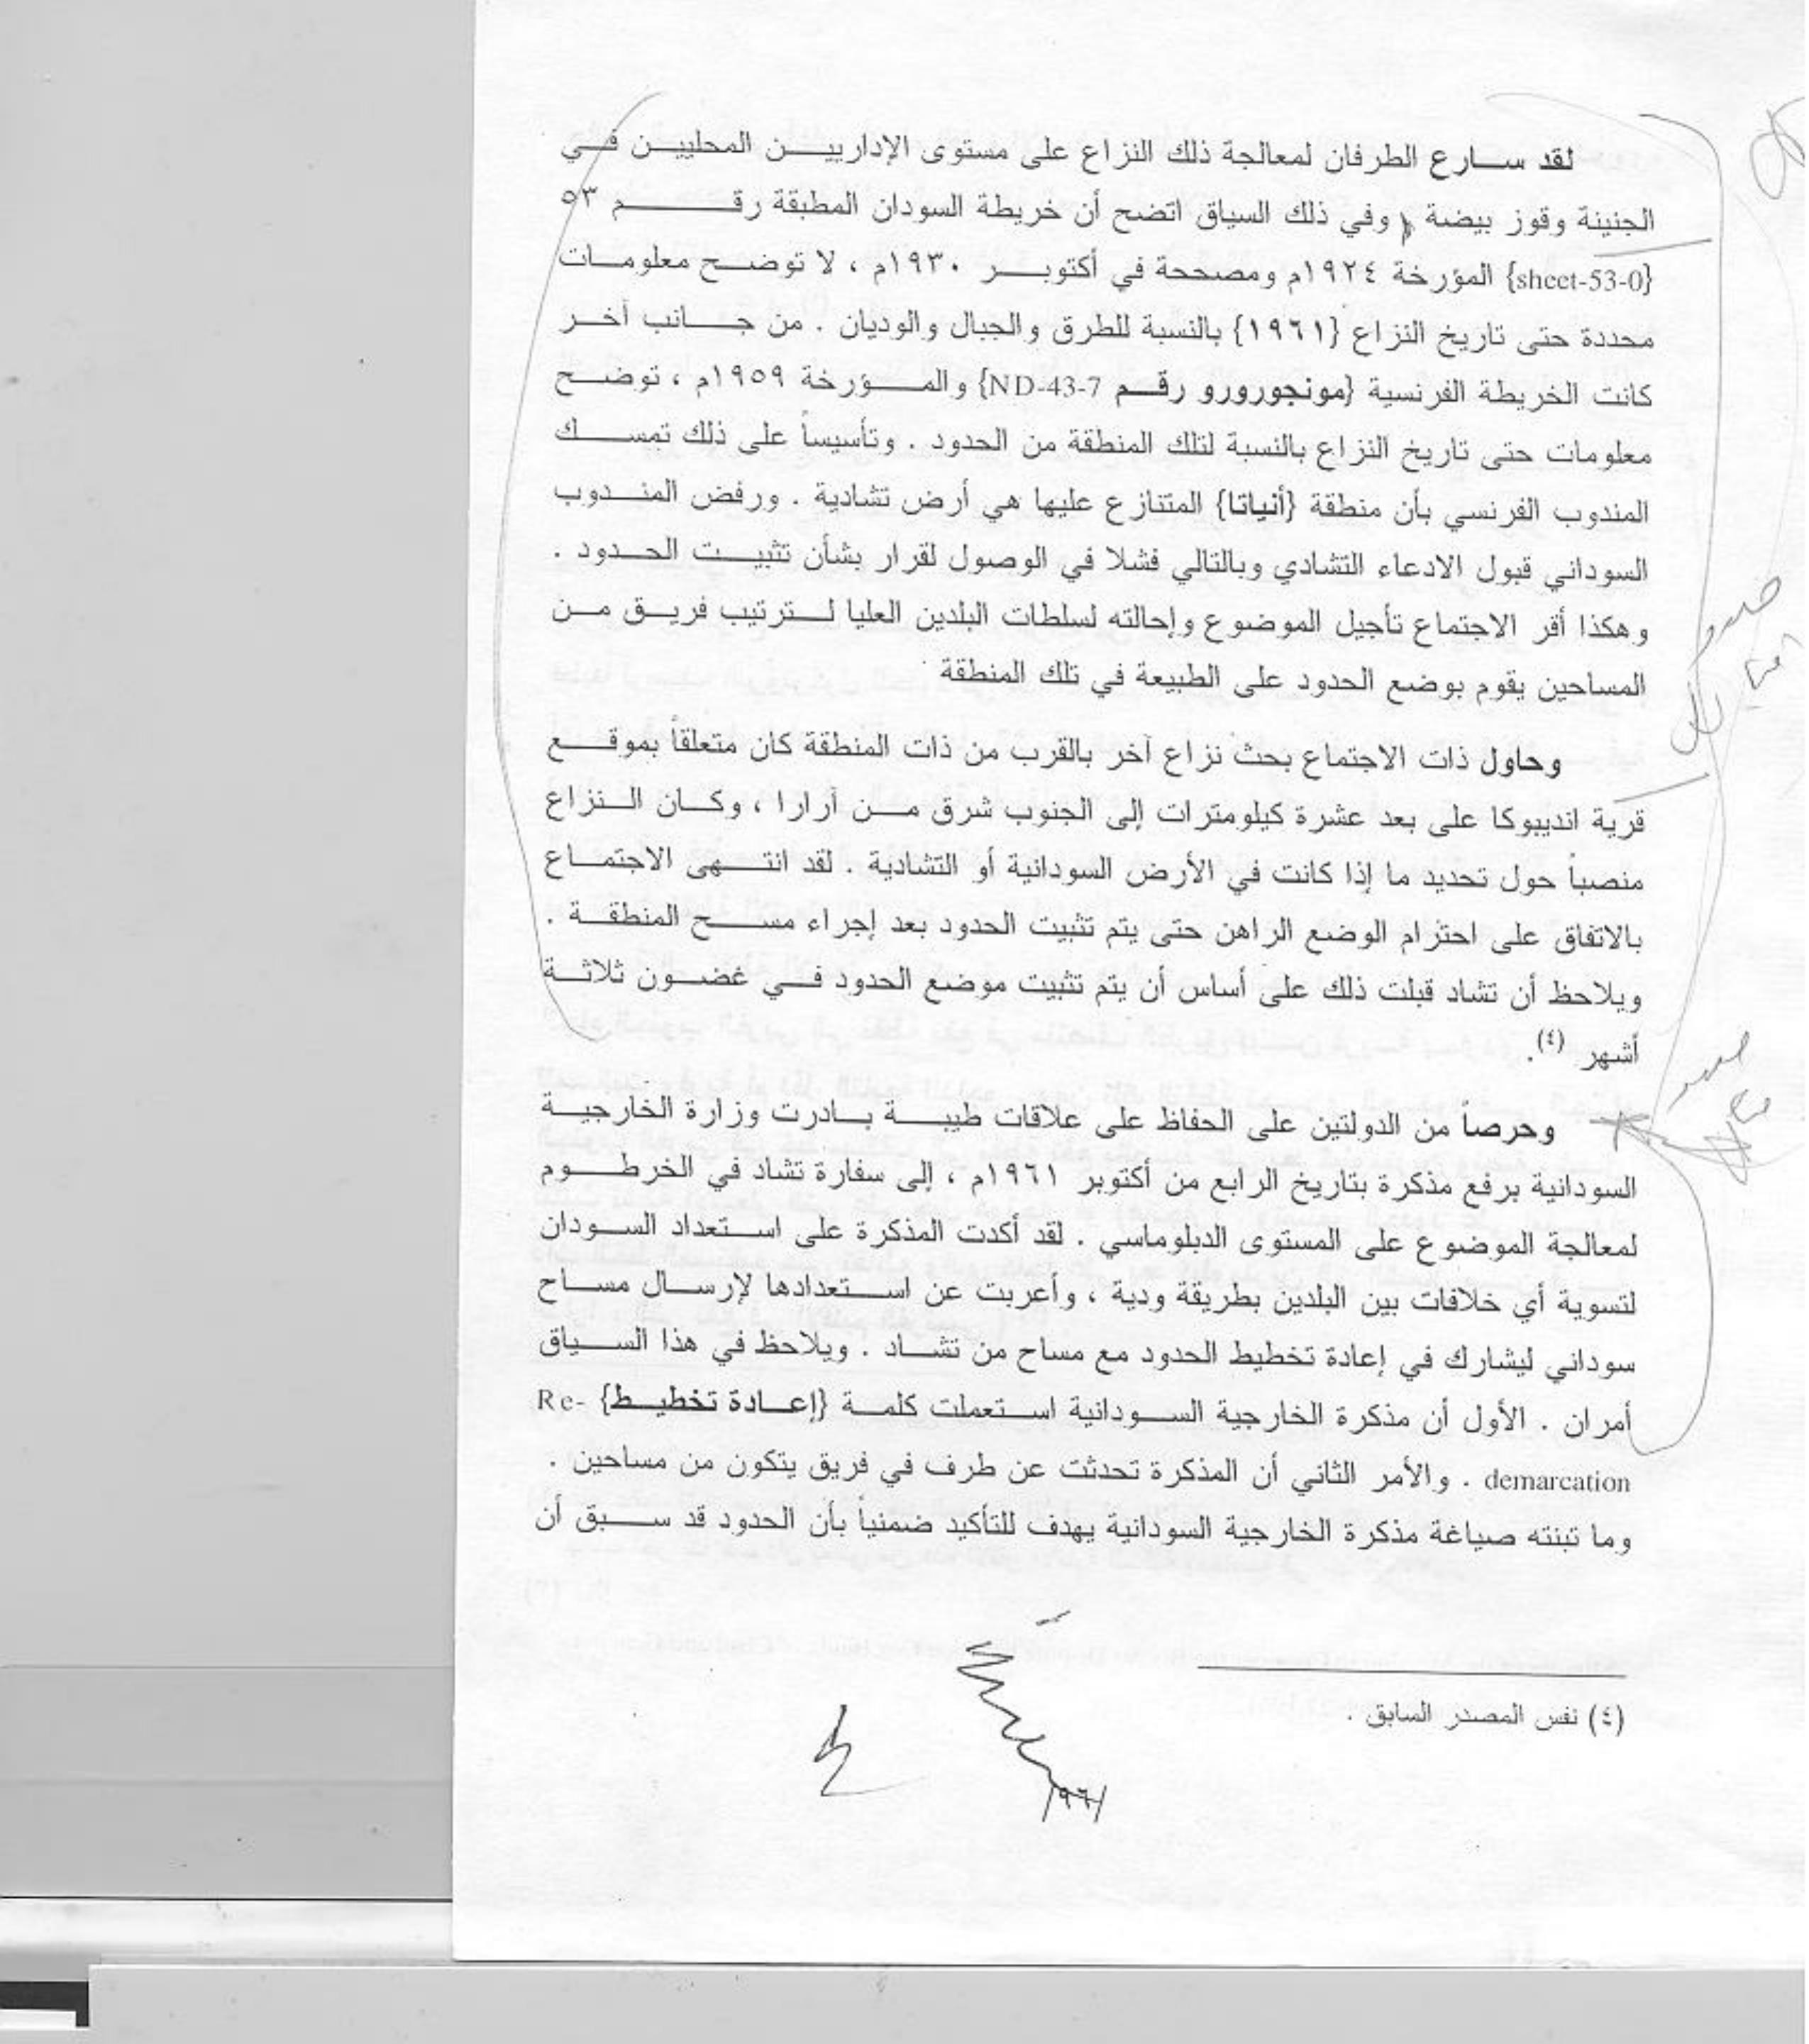 لقد سارع الطرفان لمعالجة ذلك النزاع على مستوى الإداريين المحليين في
الجنينة وقوز بيضة وفي ذلك السياق اتضح أن خريطة السودان المطبقة رقم ٥٣
{sheet-53-0} المؤرخة ١٩٢٤م ومصححة في أكتوبر ١٩٣٠م ، لا توضح معلومات
محددة حتى تاريخ النزاع {١٩٦١} بالنسبة للطرق والجبال والوديان . من جانب آخر
كانت الخريطة الفرنسية {مونجورورو رقم ND-43-7} والمؤرخة ١٩٥٩م ، توضح
معلومات حتى تاريخ النزاع بالنسبة لتلك المنطقة من الحدود . وتأسيساً على ذلك تمسك
المندوب الفرنسي بأن منطقة {أنياتا} المتنازع عليها هي أرض تشادية . ورفض المندوب
السوداني قبول الادعاء التشادي وبالتالي فشلا في الوصول لقرار بشأن تثبيت الحدود .
وهكذا أقر الاجتماع تأجيل الموضوع وإحالته لسلطات البلدين العليا لترتيب فريق من
المساحين يقوم بوضع الحدود على الطبيعة في تلك المنطقة
وحاول ذات الاجتماع بحث نزاع آخر بالقرب من ذات المنطقة كان متعلقاً بموقع
قرية انديبوكا على بعد عشرة كيلومترات إلى الجنوب شرق من أرارا ، وكان النزاع
منصباً حول تحديد ما إذا كانت في الأرض السودانية أو التشادية . لقد انتهى الاجتماع
بالاتفاق على احترام الوضع الراهن حتى يتم تثبيت الحدود بعد إجراء مسح المنطقة .
ويلاحظ أن تشاد قبلت ذلك على أساس أن يتم تثبيت موضع الحدود في غضون ثلاثة
أشهر (٤).
وحرصاً من الدولتين على الحفاظ على علاقات طيبة بادرت وزارة الخارجية
السودانية برفع مذكرة بتاريخ الرابع من أكتوبر ١٩٦١م ، إلى سفارة تشاد في الخرطوم
لمعالجة الموضوع على المستوى الدبلوماسي . لقد أكدت المذكرة على استعداد السودان
لتسوية أي خلافات بين البلدين بطريقة ودية ، وأعربت عن استعدادها لإرسال مساح
سوداني ليشارك في إعادة تخطيط الحدود مع مساح من تشاد . ويلاحظ في هذا السياق
أمران . الأول أن مذكرة الخارجية السودانية استعملت كلمة {إعادة تخطيط} Re-
demarcation . والأمر الثاني أن المذكرة تحدثت عن طرف في فريق يتكون من مساحين .
وما تبنته صياغة مذكرة الخارجية السودانية يهدف للتأكيد ضمنياً بأن الحدود قد سبق أن
(٤) نفس المصدر السابق .
١٩٦١